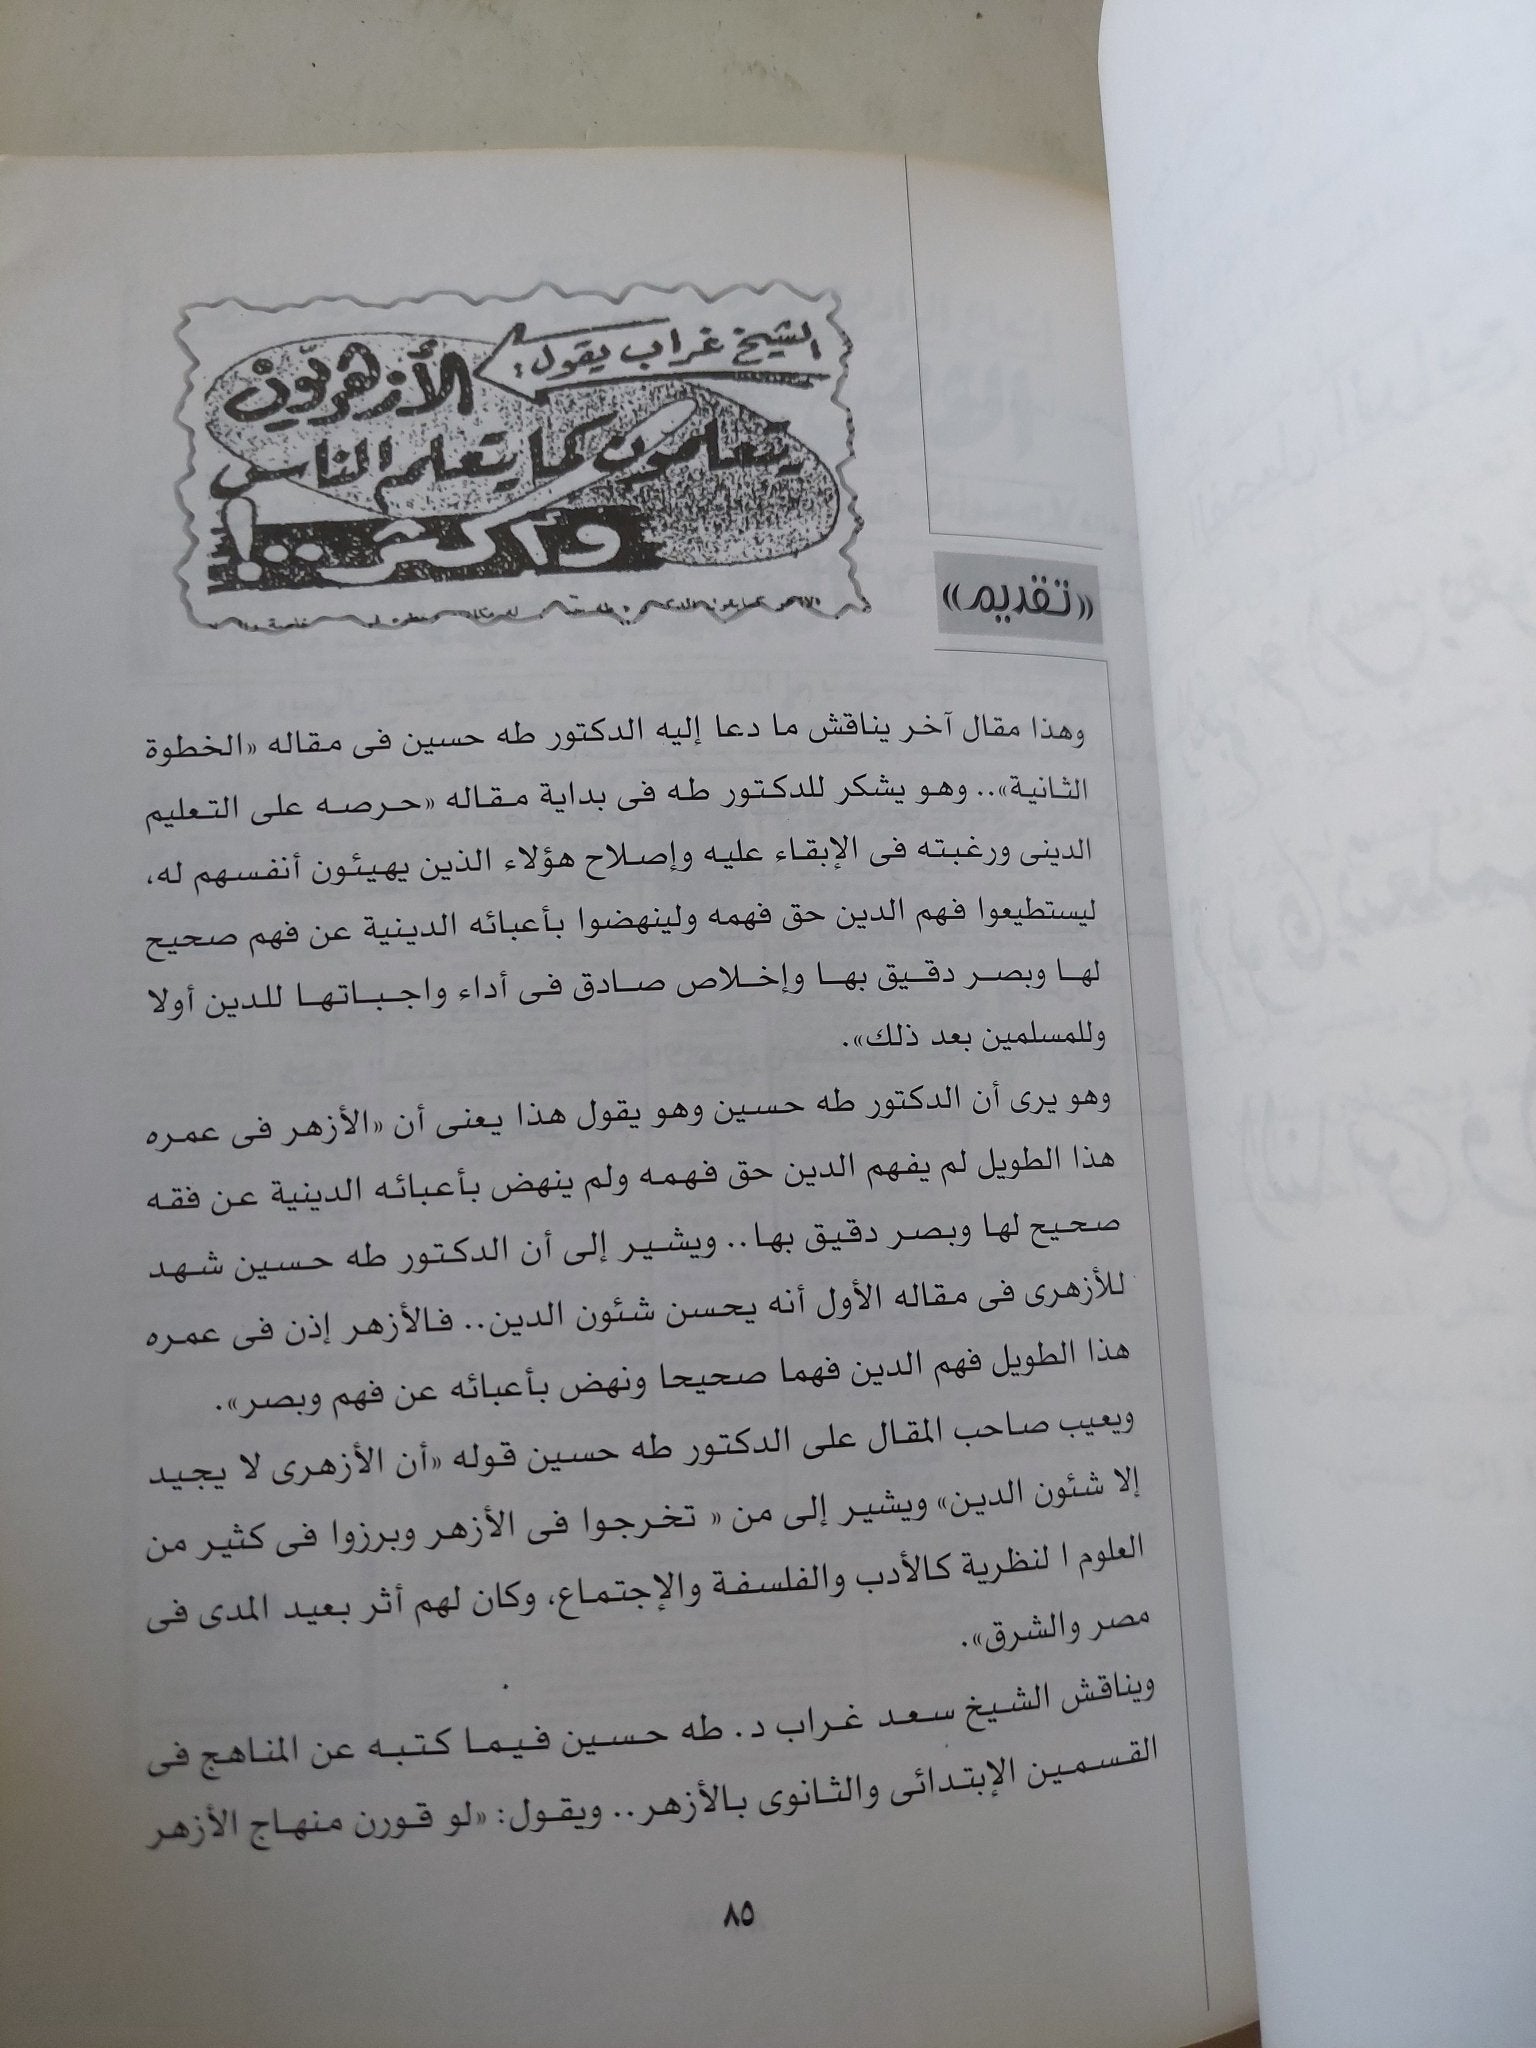 الشيخ غراب يقول:
الأزهريّون
يتعلمون كما يتعلم الناس
وأكثر..!
«تقديم»
وهذا مقال آخر يناقش ما دعا إليه الدكتور طه حسين فى مقاله «الخطوة
الثانية».. وهو يشكر للدكتور طه فى بداية مقاله «حرصه على التعليم
الدينى ورغبته فى الإبقاء عليه وإصلاح هؤلاء الذين يهيئون أنفسهم له،
ليستطيعوا فهم الدين حق فهمه ولينهضوا بأعبائه الدينية عن فهم صحيح
لها وبصر دقيق بها وإخلاص صادق فى أداء واجباتها للدين أولا
وللمسلمين بعد ذلك».
وهو يرى أن الدكتور طه حسين وهو يقول هذا يعنى أن «الأزهر فى عمره
هذا الطويل لم يفهم الدين حق فهمه ولم ينهض بأعبائه الدينية عن فقه
صحيح لها وبصر دقيق بها.. ويشير إلى أن الدكتور طه حسين شهد
للأزهرى فى مقاله الأول أنه يحسن شئون الدين.. فالأزهر إذن فى عمره
هذا الطويل فهم الدين فهما صحيحا ونهض بأعبائه عن فهم وبصر».
ويعيب صاحب المقال على الدكتور طه حسين قوله «أن الأزهرى لا يجيد
إلا شئون الدين» ويشير إلى من « تخرجوا فى الأزهر وبرزوا فى كثير من
العلوم ا لنظرية كالأدب والفلسفة والإجتماع، وكان لهم أثر بعيد المدى فى
مصر والشرق».
ويناقش الشيخ سعد غراب د. طه حسين فيما كتبه عن المناهج فى
القسمين الإبتدائى والثانوى بالأزهر.. ويقول: «لو قورن منهاج الأزهر
٨٥